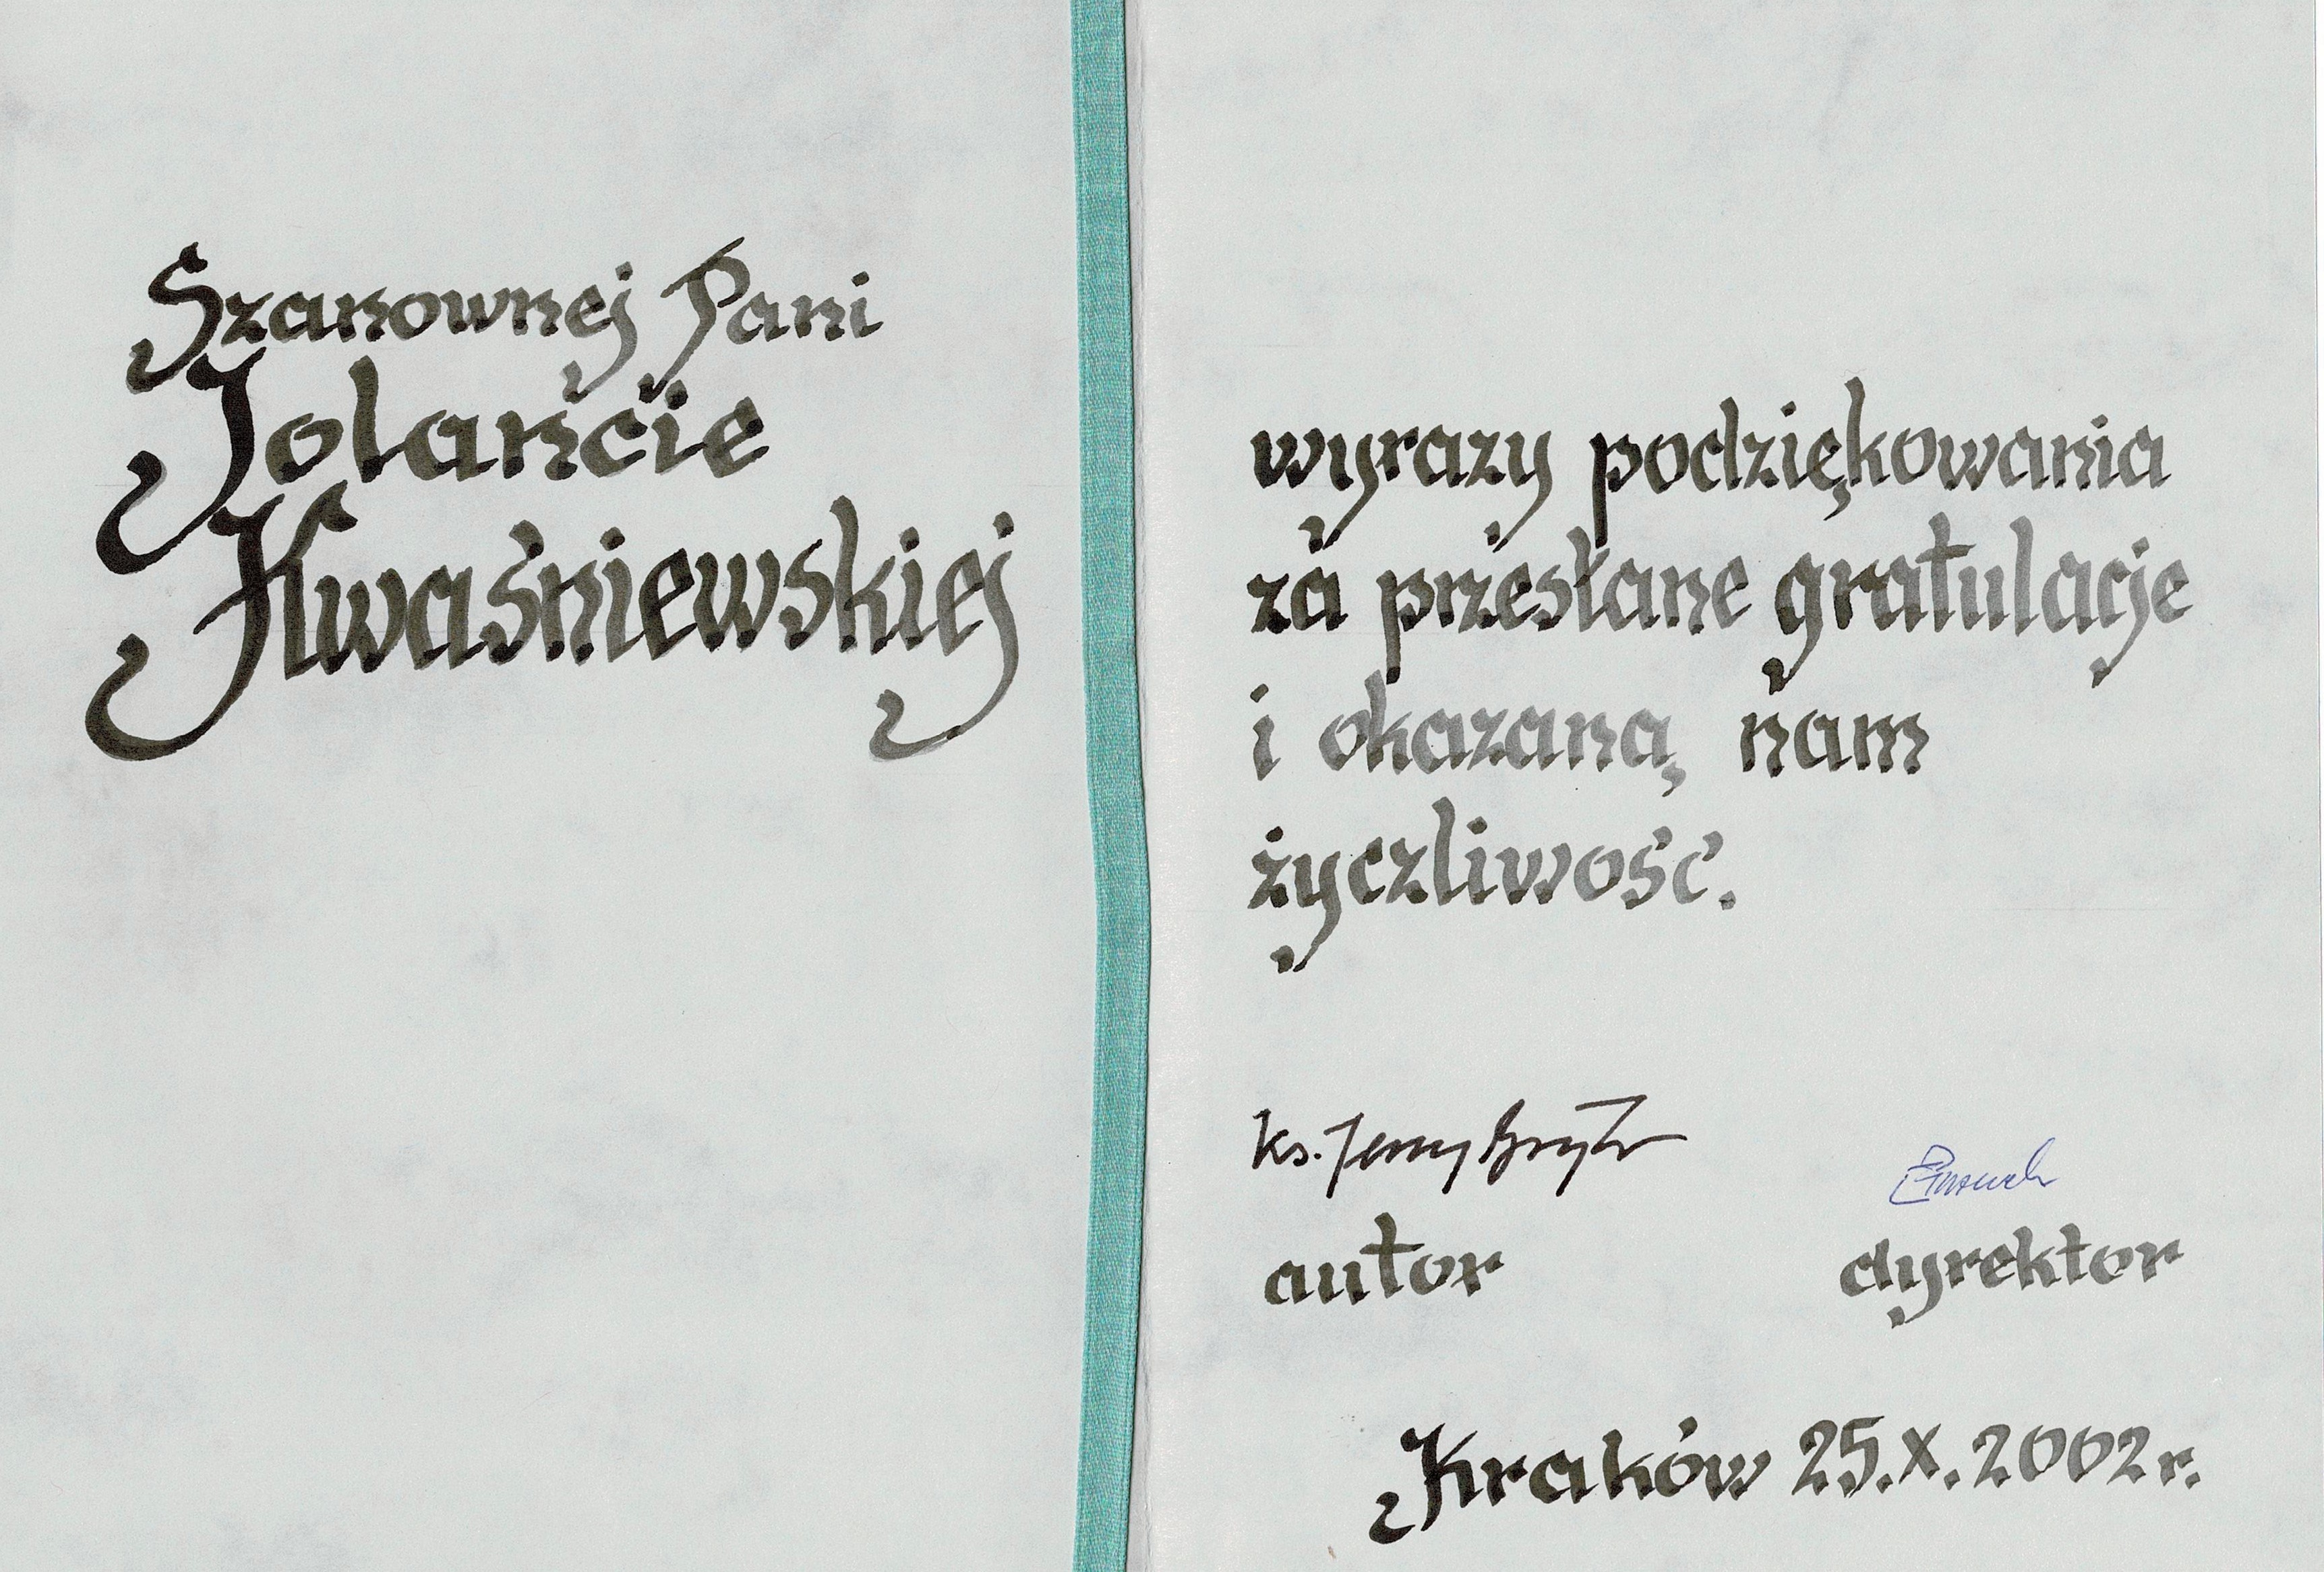 Szanownej Pani
Jolancie
Kwaśniewskiej
wyrazy podziękowania
za przesłane gratulacje
i okazaną nam
życzliwość.
ks. Jerzy
autor
dyrektor
Kraków 25.X.2002 r.